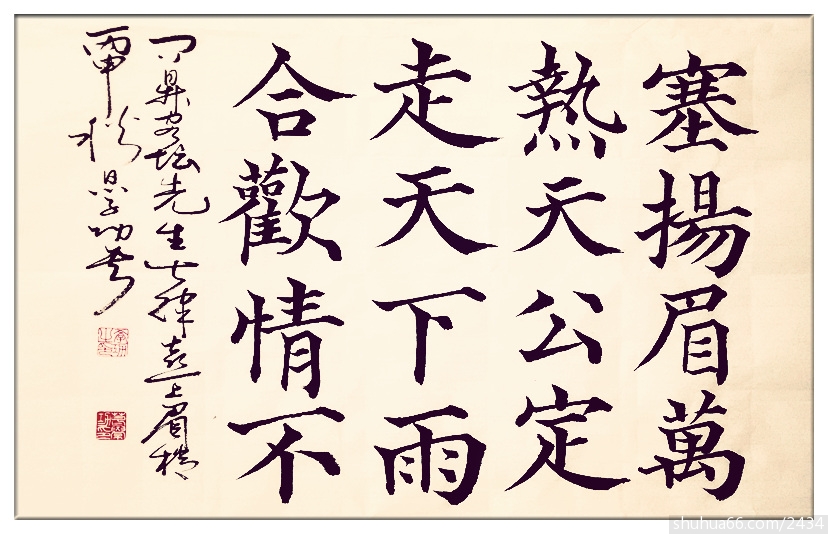 塞揚眉萬
熱天公定
走天下雨
合歡情不
先生七律喜上眉梢
丙申秋
shuhua66.com/2434